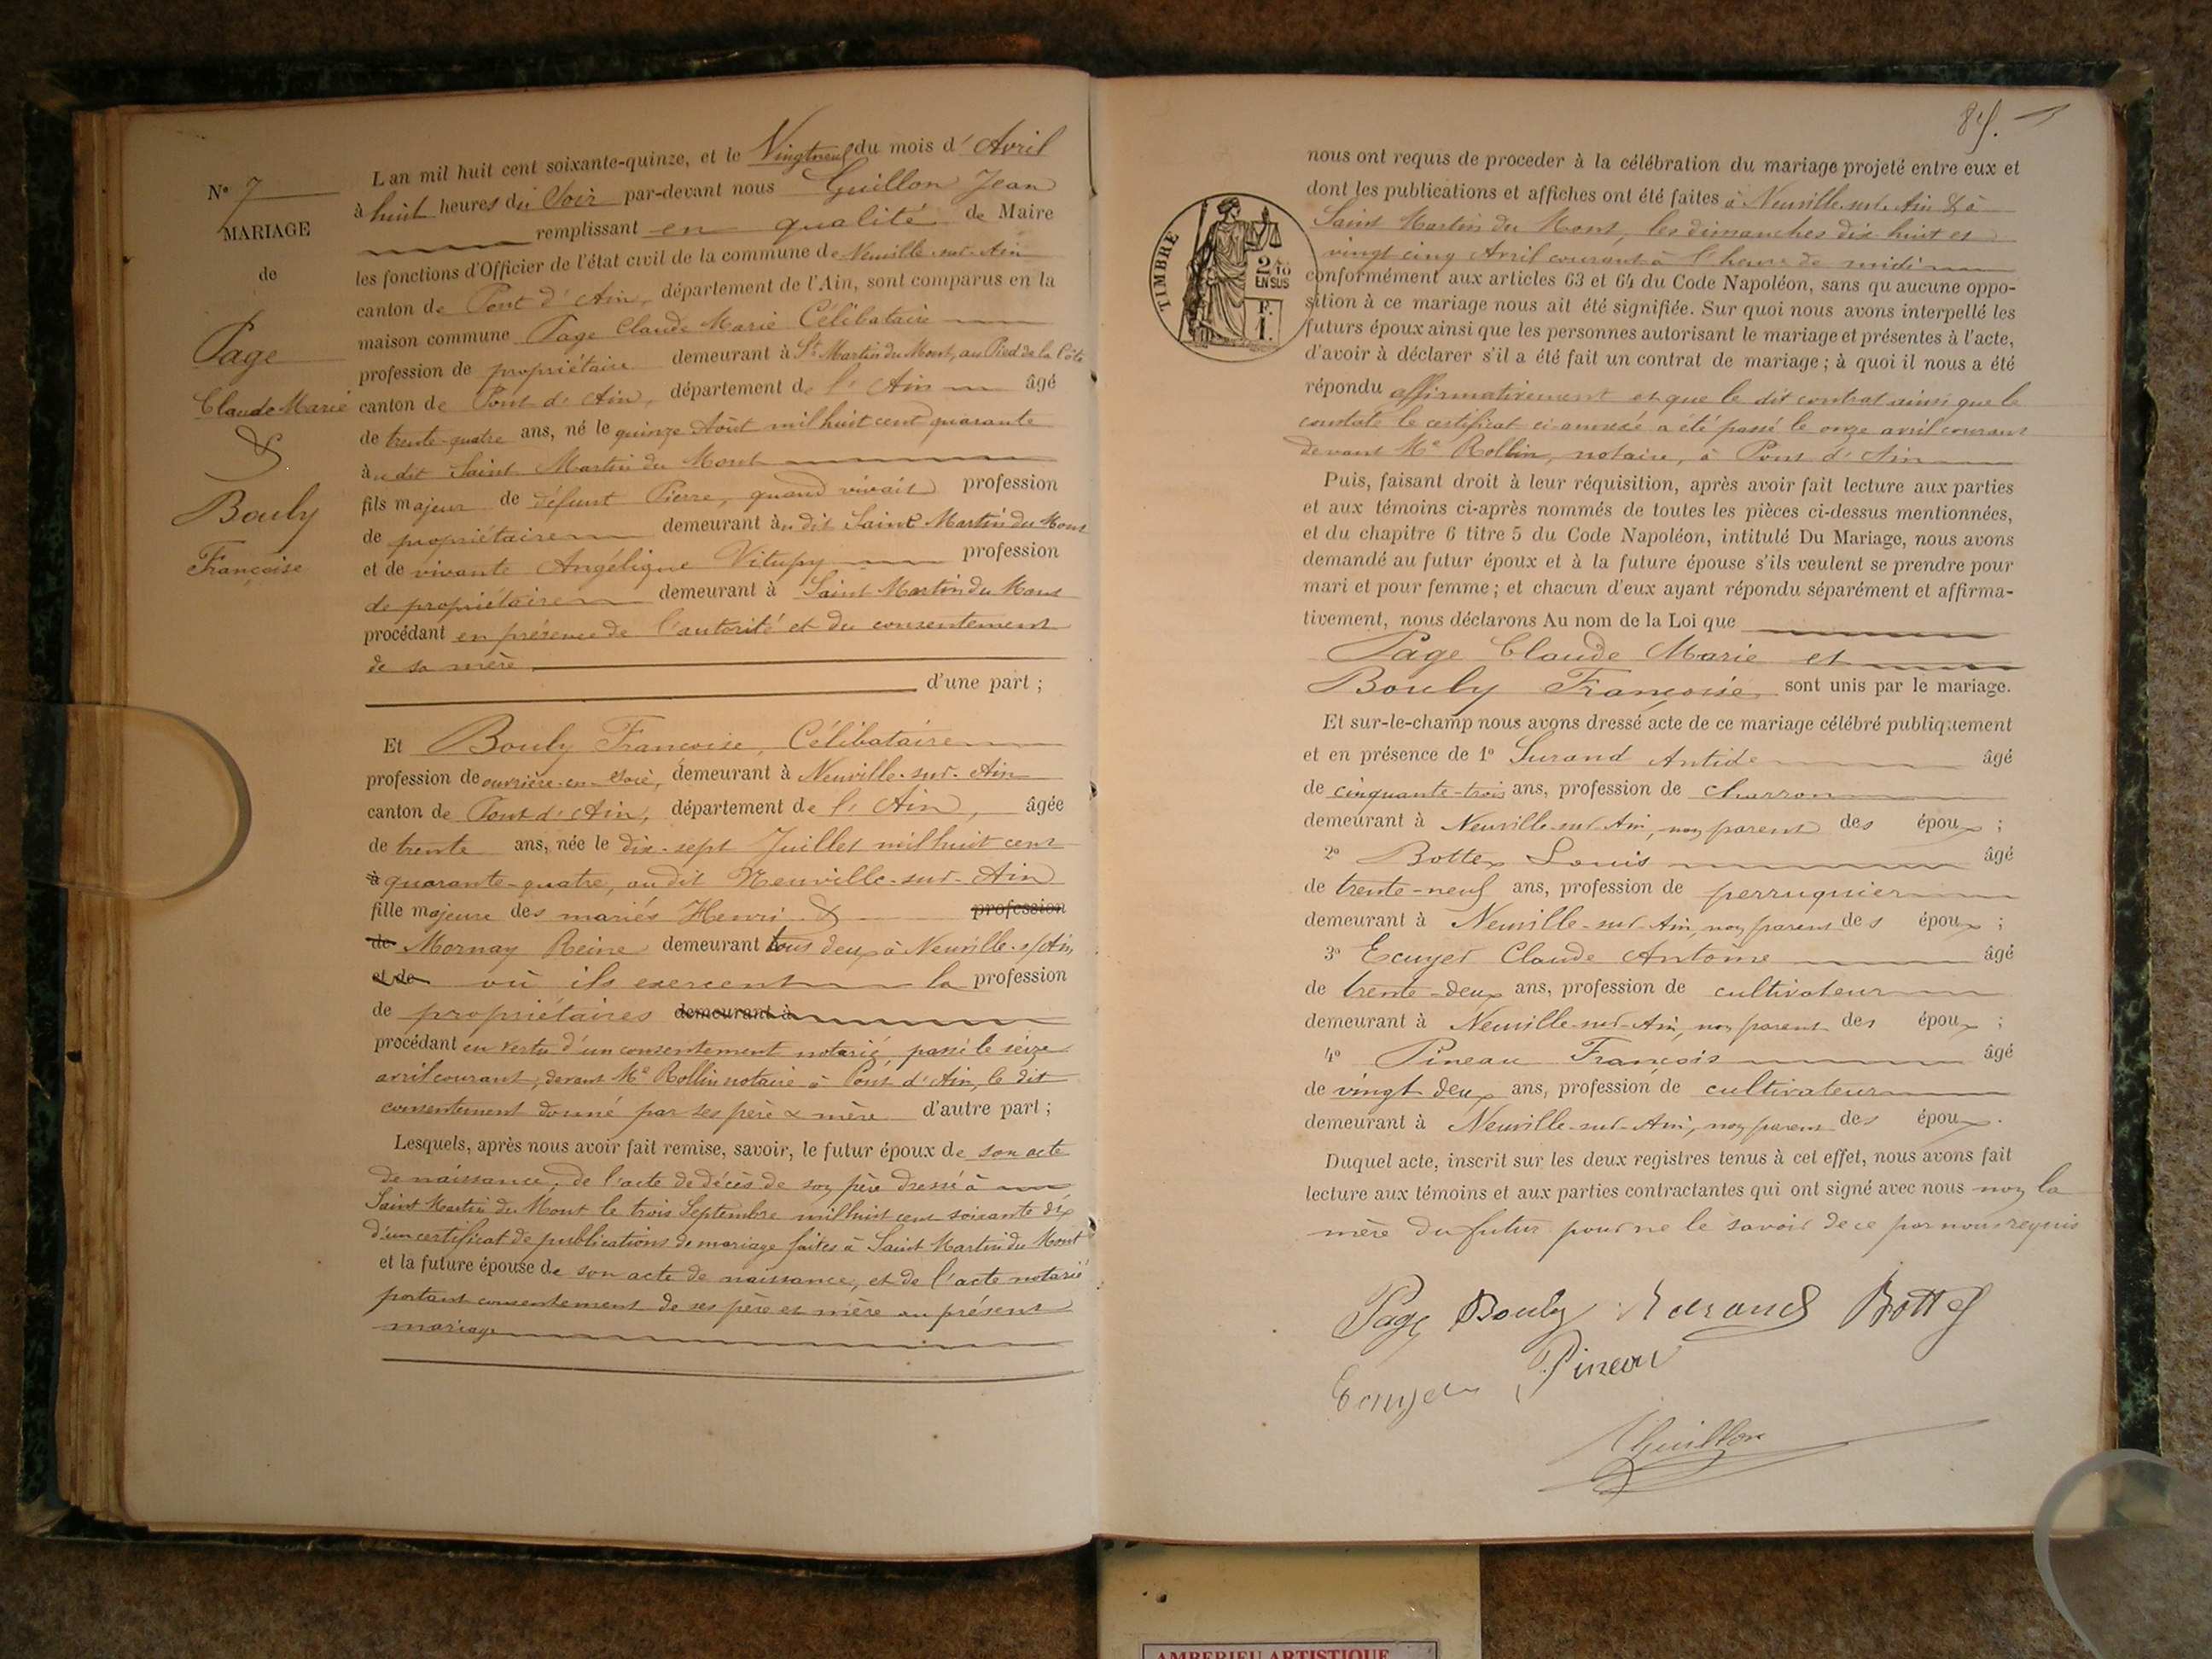 N° 7
MARIAGE
de
Page
Claude Marie
&
Bouly
Françoise
L an mil huit cent soixante-quinze, et le Vingtneuf du mois d' Avril
à huit heures du Soir par-devant nous Guillon Jean
remplissant en qualité de Maire
les fonctions d'Officier de l'état civil de la commune de Neuville-sur-Ain
canton de Pont d'Ain, département de l'Ain, sont comparus en la
maison commune Page Claude Marie Célibataire
profession de propriétaire demeurant à St Martin du Mont, au Pied de la Côte
canton de Pont d'Ain, département de l'Ain âgé
de trente-quatre ans, né le quinze Août mil huit cent quarante
àu dit Saint Martin du Mont
fils majeur de défunt Pierre, quand vivait profession
de propriétaire demeurant àu dit Saint Martin du Mont
et de vivante Angélique Vitupy profession
de propriétaire demeurant à Saint Martin du Mont
procédant en présence de l'autorité et du consentement
de sa mère
d'une part ;
Et Bouly Francoise, Célibataire
profession de ouvrière-en-soie, demeurant à Neuville-sur-Ain
canton de Pont d'Ain, département de l'Ain, âgée
de trente ans, née le dix-sept Juillet mil huit cent
à quarante-quatre, au dit Neuville-sur-Ain
fille majeure des mariés Henri & profession
de Mornay Reine demeurant tous deux à Neuville-s/Ain,
et de où ils exercent la profession
de propriétaires demeurant à
procédant en vertu d'un consentement notarié, passé le seize
avril courant, devant Me Rollin notaire à Pont d'Ain, le dit
consentement donné par ses père & mère d'autre part ;
Lesquels, après nous avoir fait remise, savoir, le futur époux de son acte
de naissance, de l'acte de décès de son père dressé à
Saint Martin du Mont le trois Septembre mil huit cent soixante dix
d'un certificat de publications de mariage faites à Saint Martin du Mont
et la future épouse de son acte de naissance, et de l'acte notarié
portant consentement de ses père et mère au présent
mariage
nous ont requis de proceder à la célébration du mariage projeté entre eux et
dont les publications et affiches ont été faites à Neuville-sur-Ain & à
Saint Martin du Mont, les dimanches dix-huit et
vingt cinq Avril courant à l'heure de midi
conformément aux articles 63 et 64 du Code Napoléon, sans qu aucune oppo-
sition à ce mariage nous ait été signifiée. Sur quoi nous avons interpellé les
futurs époux ainsi que les personnes autorisant le mariage et présentes à l'acte,
d'avoir à déclarer s'il a été fait un contrat de mariage ; à quoi il nous a été
répondu affirmativement et que le dit contrat ainsi que le
constate le certificat ci-annexé a été passé le onze avril courant
devant Me Rollin, notaire, à Pont d'Ain
Puis, faisant droit à leur réquisition, après avoir fait lecture aux parties
et aux témoins ci-après nommés de toutes les pièces ci-dessus mentionnées,
et du chapitre 6 titre 5 du Code Napoléon, intitulé Du Mariage, nous avons
demandé au futur époux et à la future épouse s'ils veulent se prendre pour
mari et pour femme ; et chacun d'eux ayant répondu séparément et affirma-
tivement, nous déclarons Au nom de la Loi que
Page Claude Marie et
Bouly Françoise, sont unis par le mariage.
Et sur-le-champ nous avons dressé acte de ce mariage célébré publiquement
et en présence de 1° Surand Antide âgé
de cinquante-trois ans, profession de charron
demeurant à Neuville-sur-Ain, non parent des époux ;
2° Bottex Louis âgé
de trente-neuf ans, profession de perruquier
demeurant à Neuville-sur-Ain, non parent des époux ;
3° Ecuyer Claude Antoine âgé
de trente-deux ans, profession de cultivateur
demeurant à Neuville-sur-Ain, non parent des époux ;
4° Pineau François âgé
de vingt deux ans, profession de cultivateur
demeurant à Neuville-sur-Ain, non parent des époux.
Duquel acte, inscrit sur les deux registres tenus à cet effet, nous avons fait
lecture aux témoins et aux parties contractantes qui ont signé avec nous non la
mère du futur pour ne le savoir de ce par nous requis
Page Bouly Bottex
Pineau
Guillon
TIMBRE
2/10
EN SUS
F.
1.
AMBERIEU ARTISTIQUE